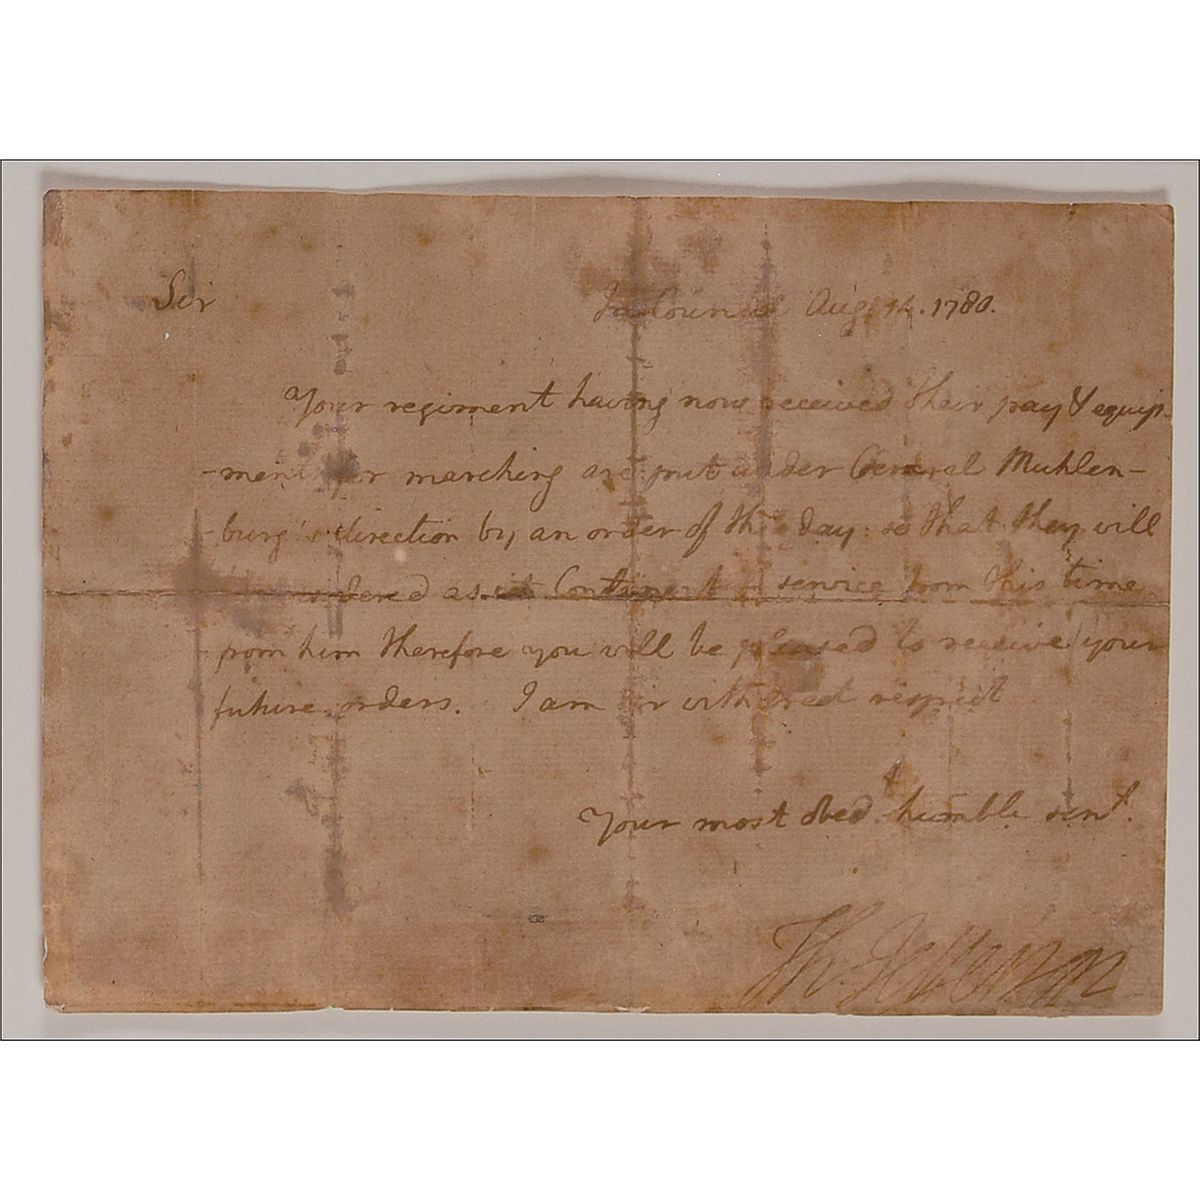 Sir
In Council Aug. 14. 1780.
Your regiment having now received their pay & equip-
-ment for marching are put under General Muhlen-
-burg's direction by an order of this day: so that they will
considered as in Continental service from this time
from him therefore you will be pleased to receive your
future orders. I am Sir with great respect
Your most obed.t humble serv.t
Th. Jefferson